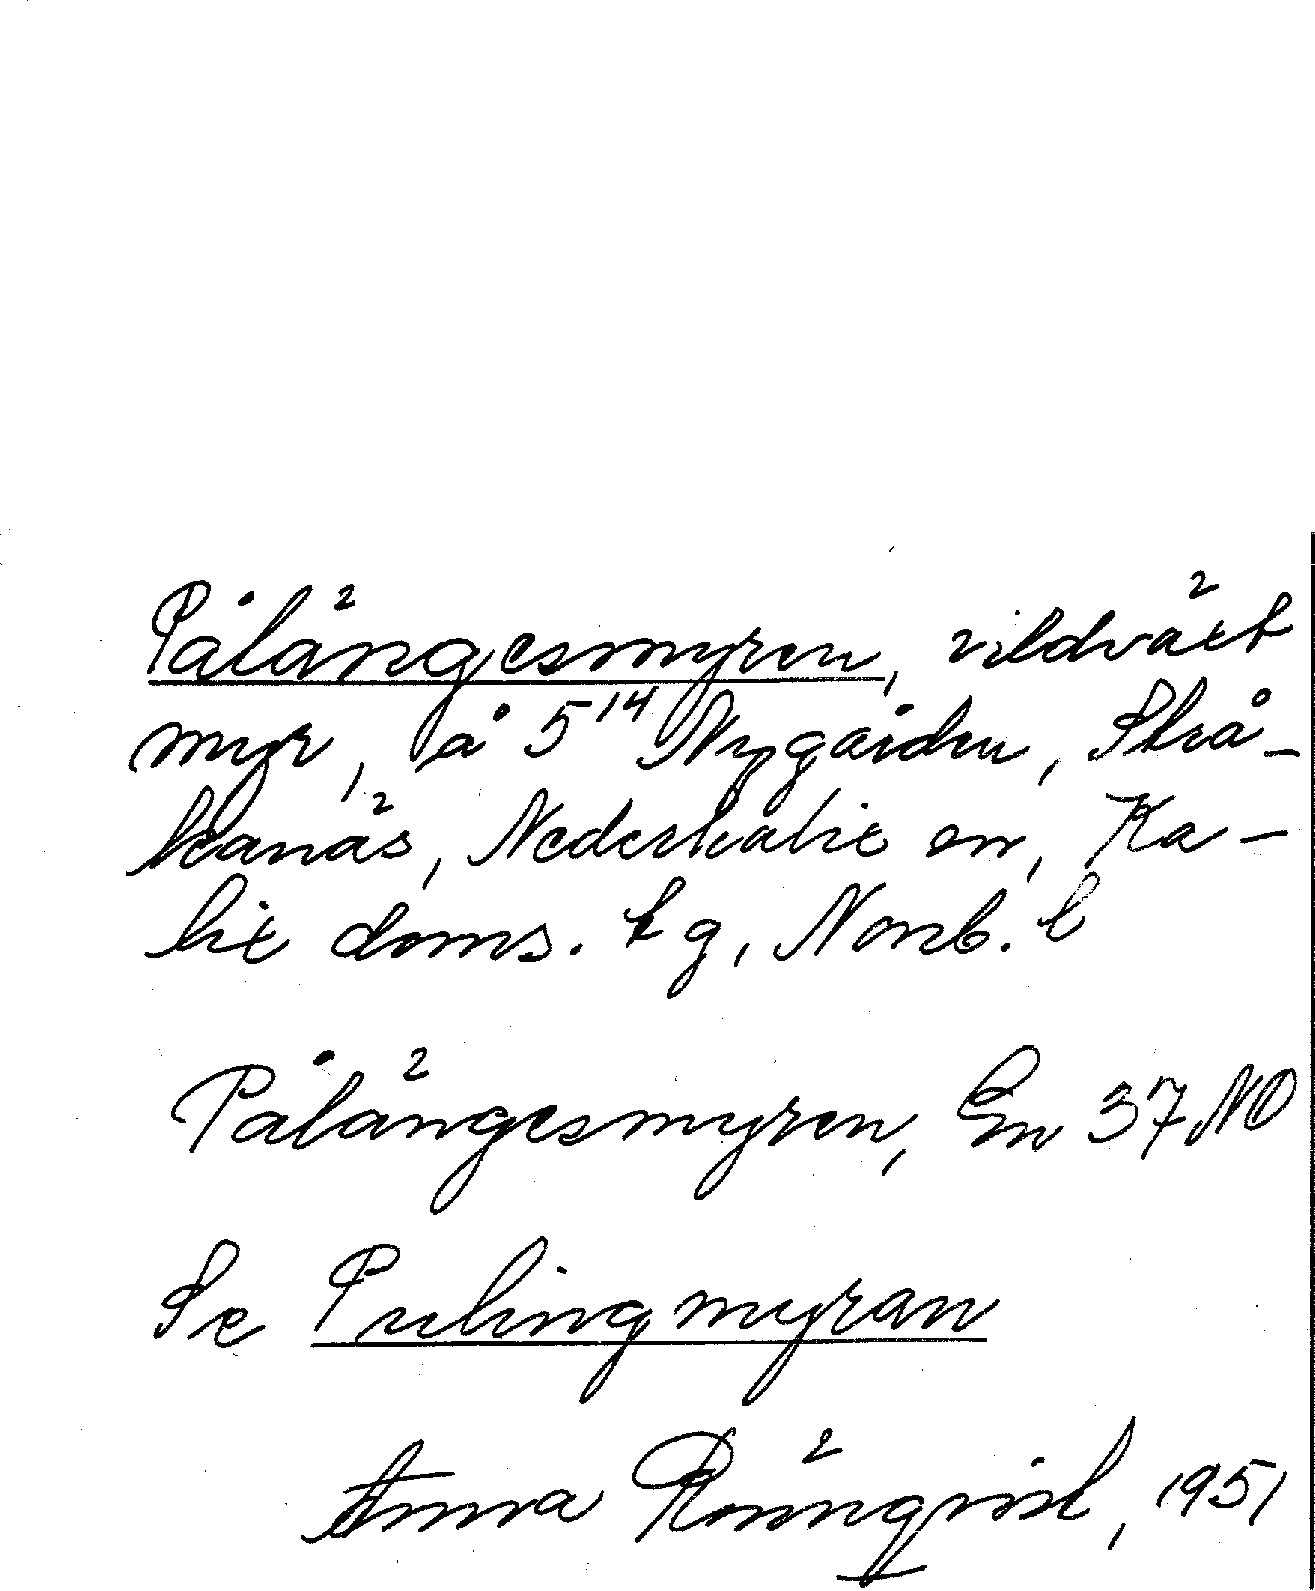 Pålängesmyren, vildväxt
myr, å 5¹⁴ Nygården, Strå-
kanäs, Nederkalix sn, Ka-
lix doms. tg, Norrb. l
Pålängesmyren, 37 NO
Se Pulingmyran
Anna Rönnqvist, 1951